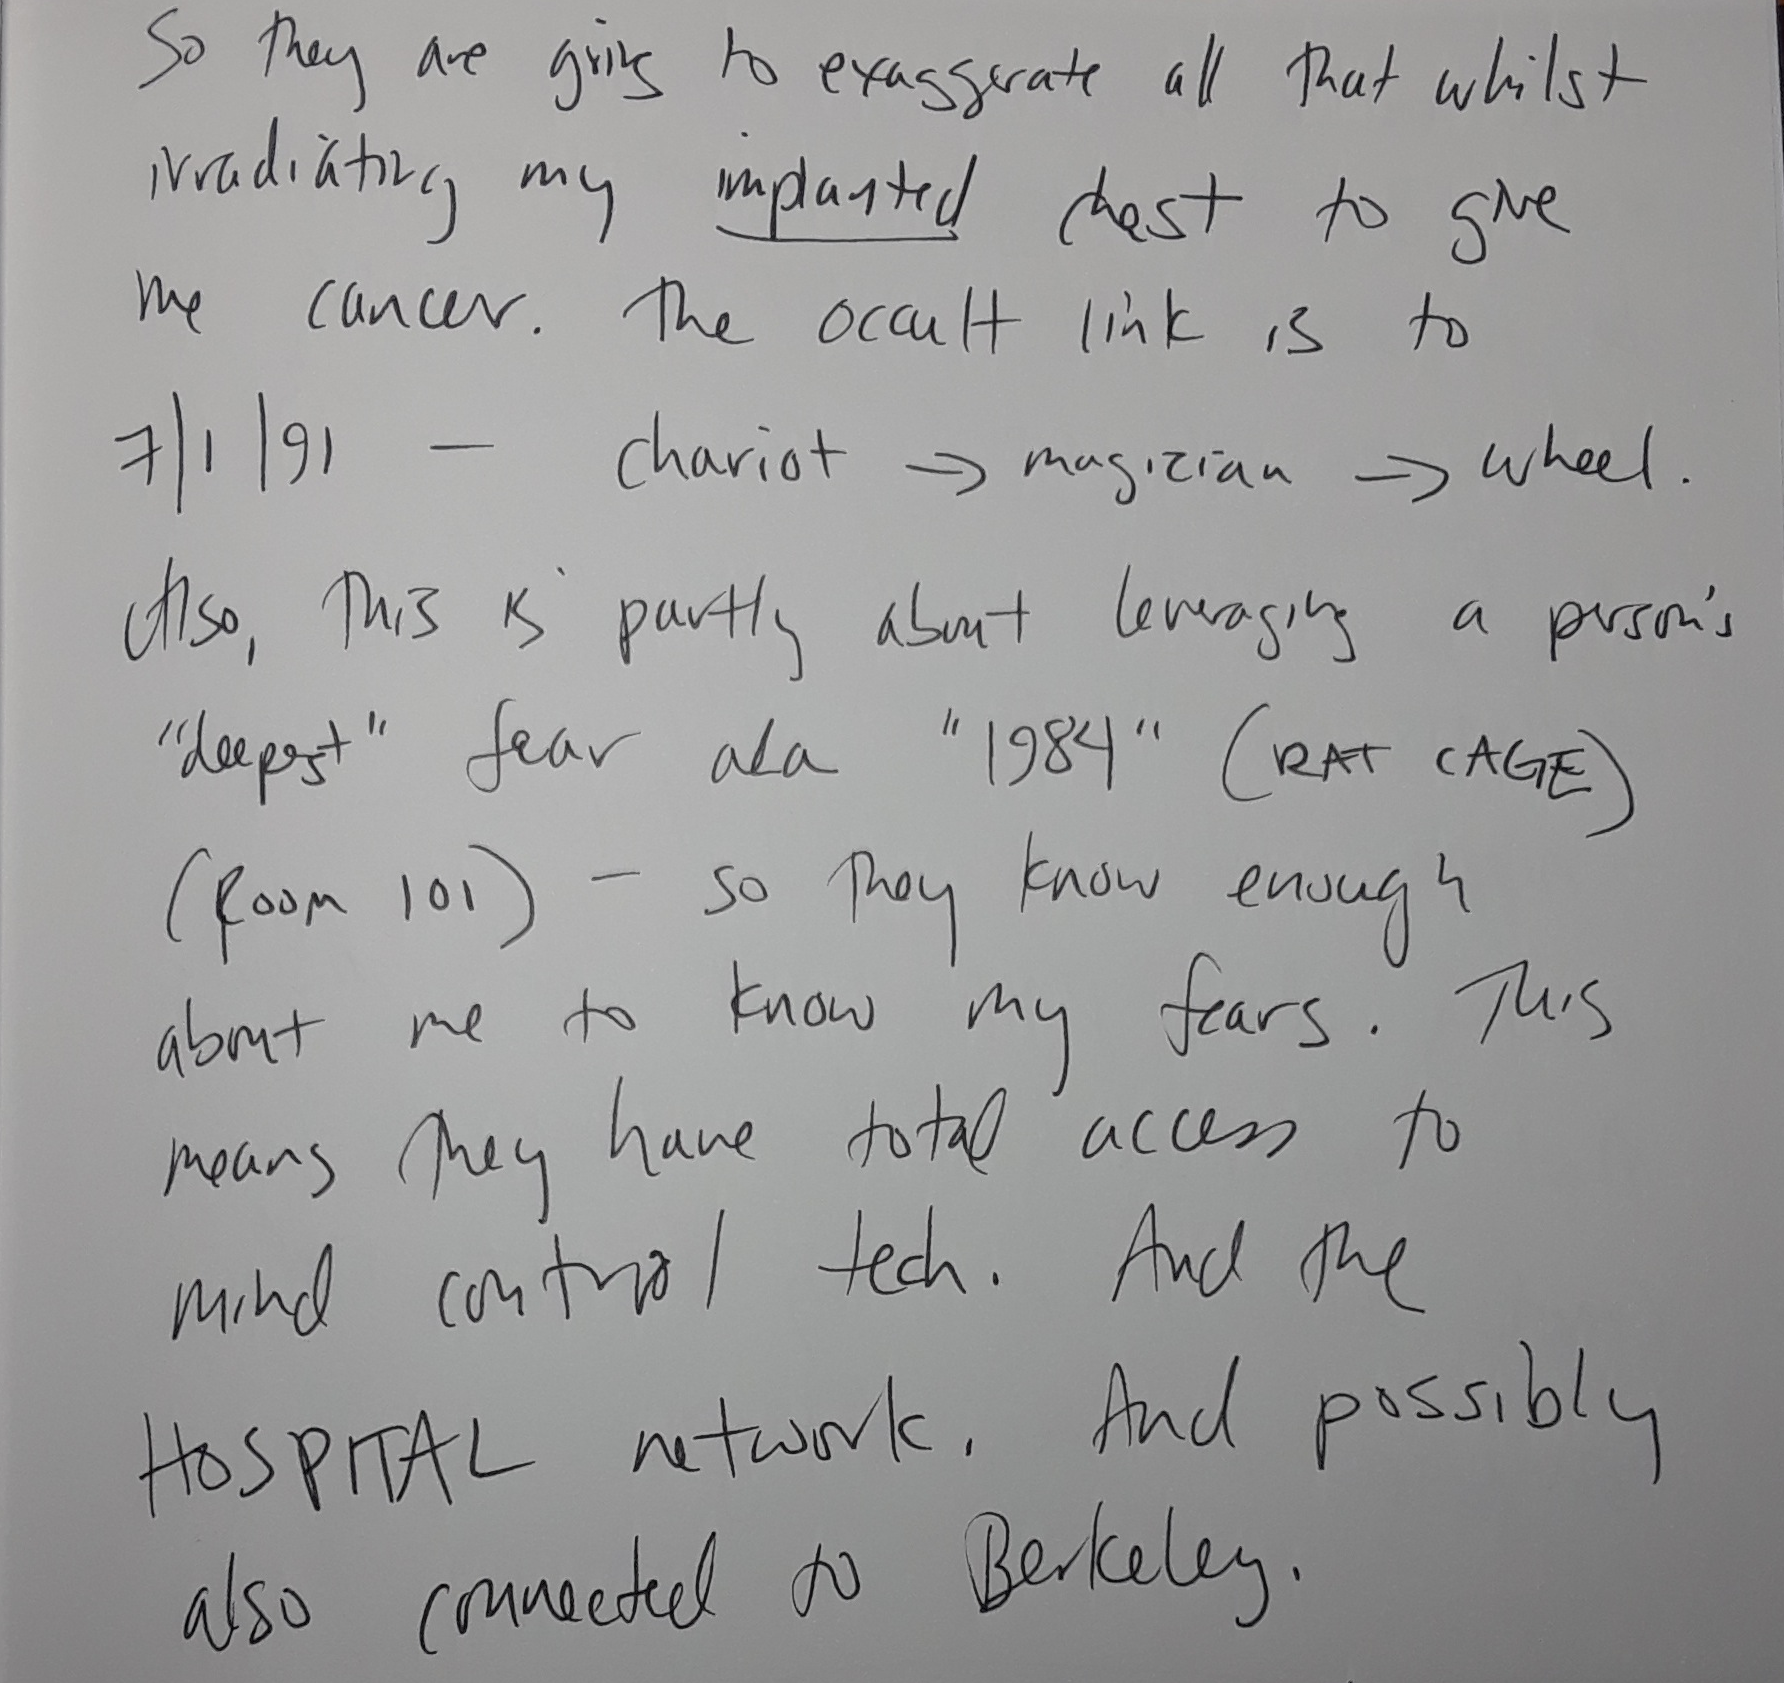 So they are going to exaggerate all that whilst
irradiating my implanted chest to give
me cancer. The occult link is to
7/1/91 – chariot → magician → wheel.
Also, this is partly about leveraging a person's
"deepest" fear ala "1984" (RAT CAGE)
(Room 101) – so they know enough
about me to know my fears. This
means they have total access to
mind control tech. And the
HOSPITAL network. And possibly
also connected to Berkeley.